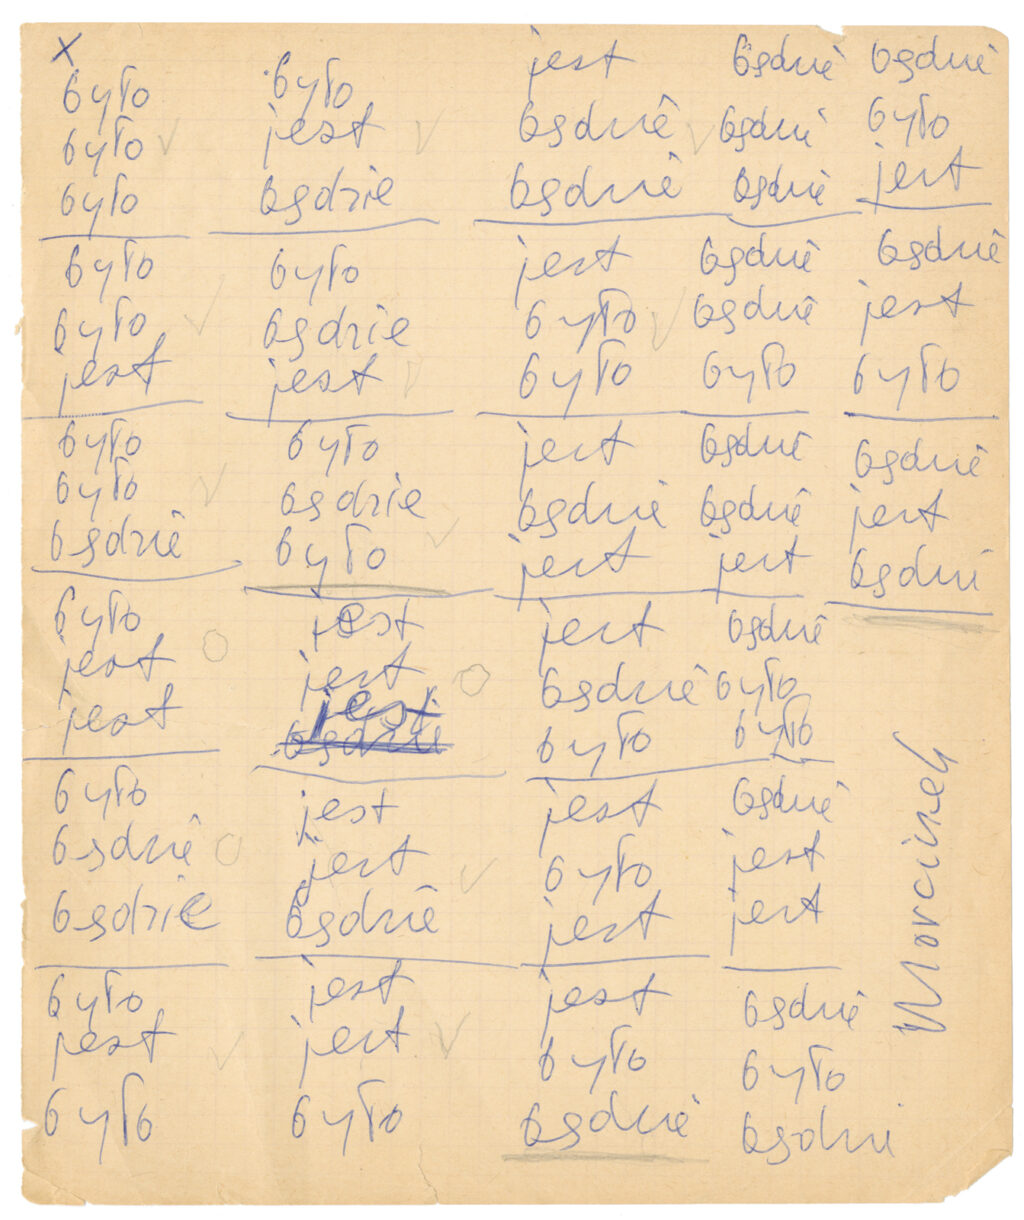 x
było
było
było
było
było
jest
było
było
będzie
było
jest
jest
było
będzie
będzie
było
jest
było
było
jest
będzie
było
będzie
jest
było
będzie
było
jest
jest
jest
będzie
jest
jest
będzie
jest
jest
było
jest
będzie
będzie
jest
było
było
jest
będzie
jest
jest
będzie
było
jest
było
jest
jest
było
będzie
będzie
będzie
będzie
będzie
będzie
było
będzie
będzie
jest
będzie
było
było
będzie
jest
jest
będzie
było
będzie
będzie
było
jest
będzie
jest
było
będzie
jest
będzie
Morcinek